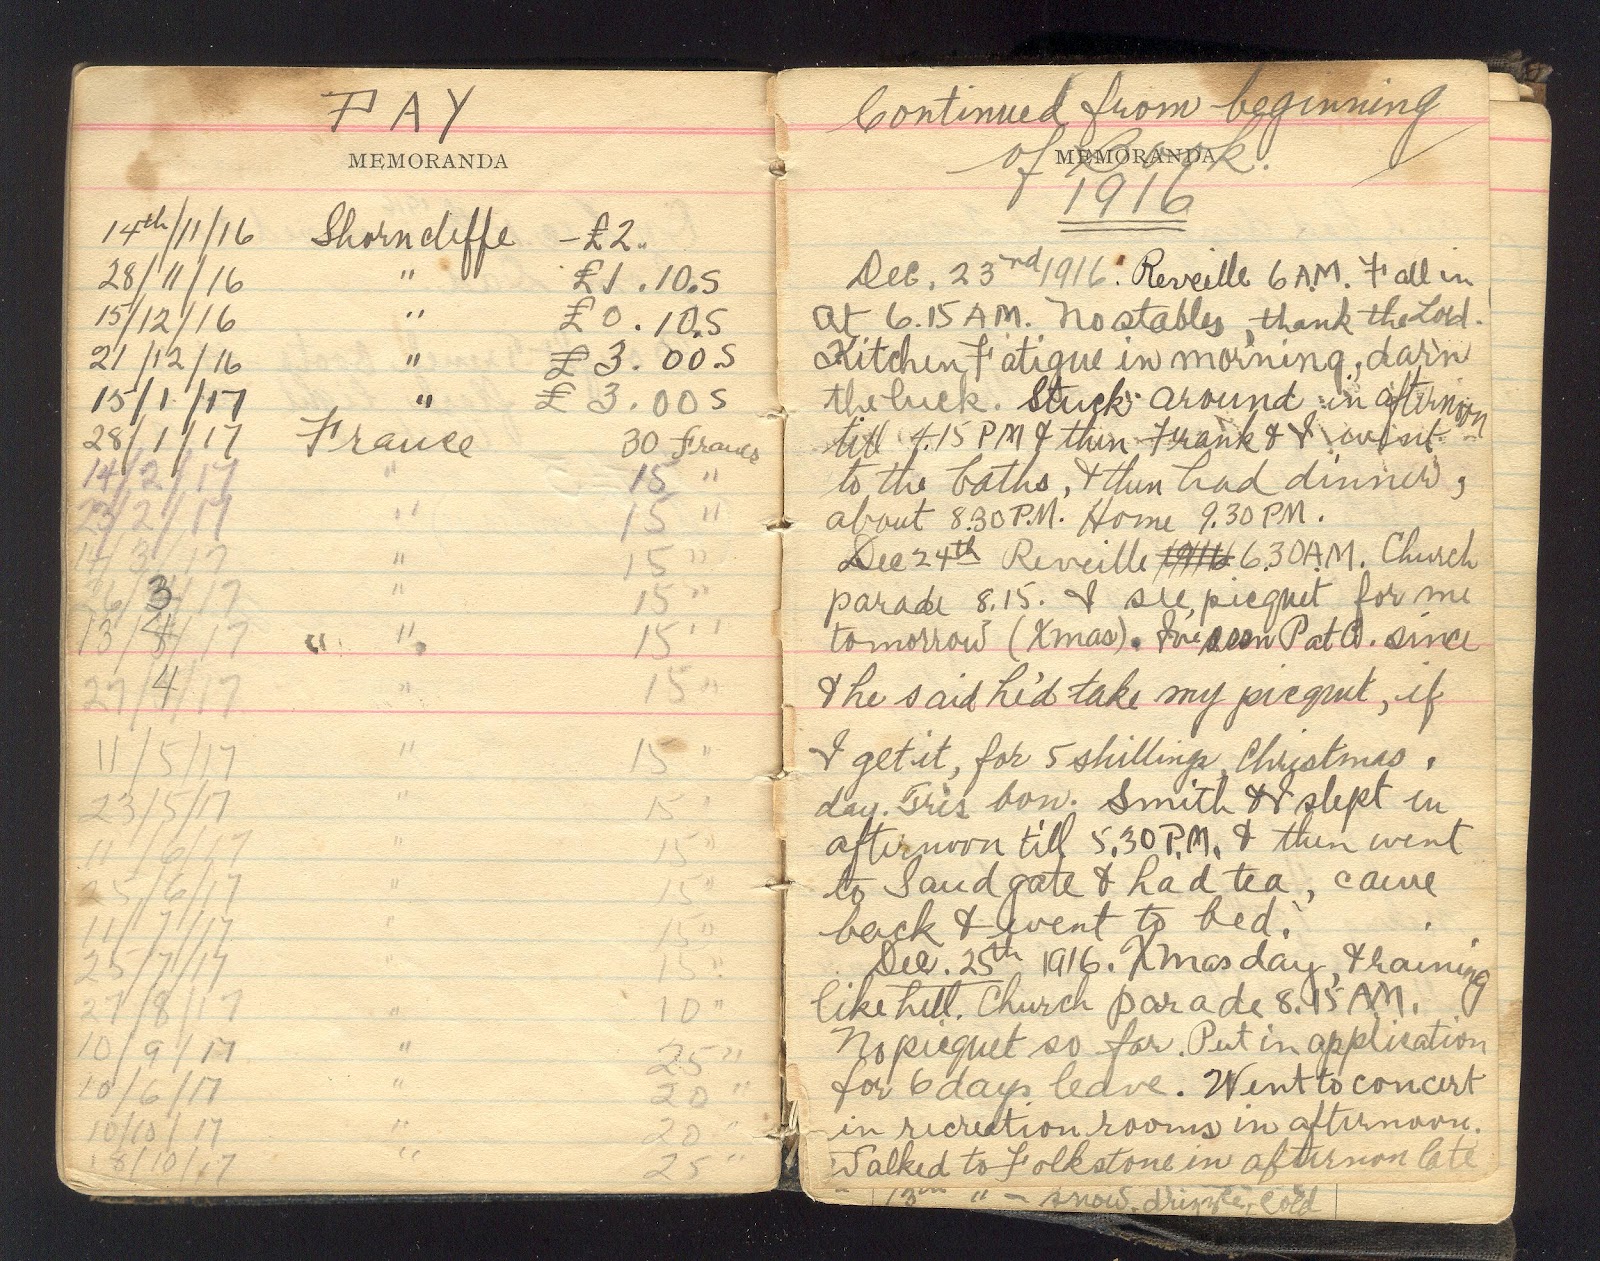 PAY
MEMORANDA
14th/11/16 Shorncliffe - £2..
28/11/16 " £1.10.s
15/12/16 " £0.10.s
21/12/16 " £3.00.s
15/1/17 " £3.00s
28/1/17 France 30 Francs
14/2/17 " 15 "
23/2/17 " 15 "
/3/17 " 15 "
26/3/17 " 15 "
13/4/17 " " 15 "
27/4/17 " 15 "
11/5/17 " 15 "
23/5/17 " 15 "
11/6/17 " 15 "
25/6/17 " 15 "
11/7/17 " 15 "
25/7/17 " 15 "
27/8/17 " 10 "
10/9/17 " 25 "
10/6/17 " 20 "
10/10/17 " 20 "
18/10/17 " 25 "
Continued from beginning
of Book.
MEMORANDA
1916
Dec. 23rd 1916. Reveille 6 A.M. Fall in
at 6.15 A.M. No stables, thank the Lord.
Kitchen Fatigue in morning, darn
the luck. Stuck around in afternoon
till 4.15 P M & then Frank & I went
to the baths, & then had dinner,
about 8.30 P.M. Home 9.30 P.M.
Dec 24th Reveille 6.30 A.M. Church
parade 8.15. I see picquet for me
tomorrow (Xmas). I've seen Pat O. since
& he said he'd take my picquet, if
I get it, for 5 shillings, Christmas
day. Trés bon. Smith & I slept in
afternoon till 5.30 P.M. & then went
to Sandgate & had tea, came
back & went to bed.
Dec. 25th 1916. Xmas day, & raining
like hell. Church parade 8.15 A.M.
No picquet so far. Put in application
for 6 days leave. Went to concert
in recreation rooms in afternoon.
Walked to Folkstone in afternon late
" 13th " - snow, drizzle, cold